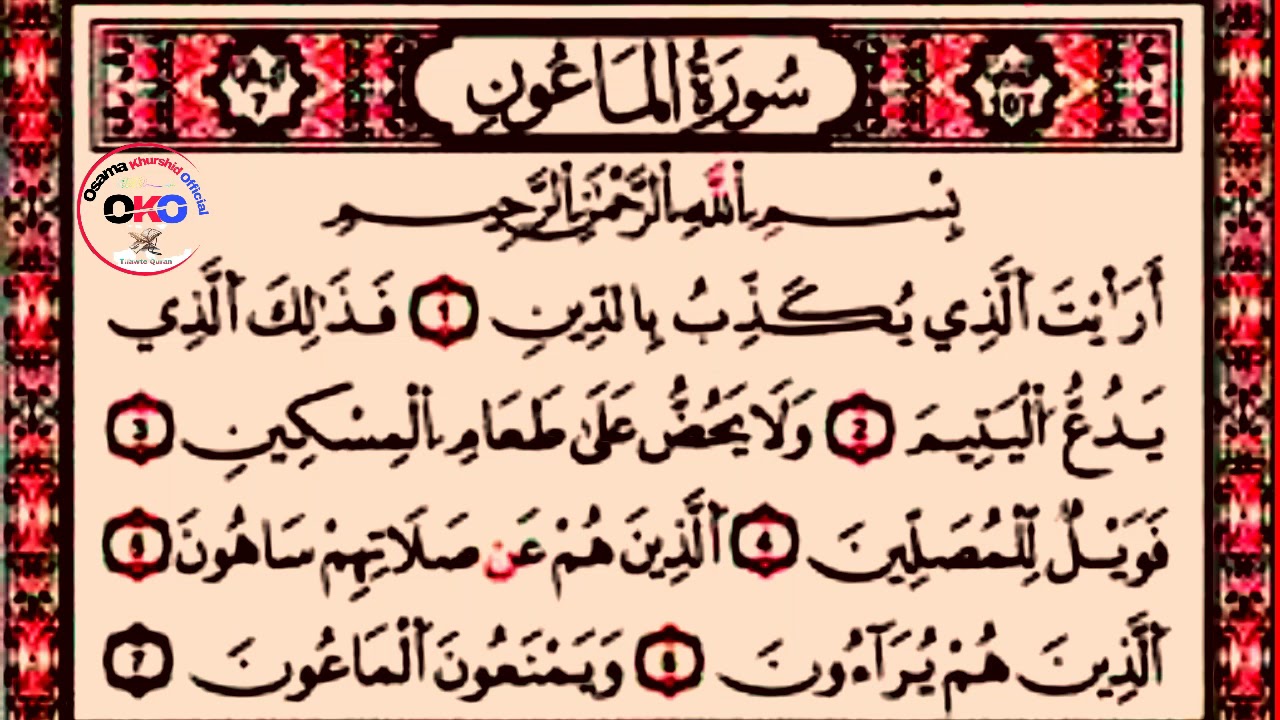 سُورَةُ المَاعُونِ
7
107
Osama Khurshid Official
OKO
Tilawte Quran
بِسْمِ ٱللَّهِ ٱلرَّحْمَٰنِ ٱلرَّحِيمِ
أَرَأَيْتَ ٱلَّذِي يُكَذِّبُ بِالدِّينِ ١ فَذَٰلِكَ ٱلَّذِي
يَدُعُّ ٱلْيَتِيمَ 2 وَلَا يَحُضُّ عَلَىٰ طَعَامِ ٱلْمِسْكِينِ 3
فَوَيْلٌ لِّلْمُصَلِّينَ 4 ٱلَّذِينَ هُمْ عَن صَلَاتِهِمْ سَاهُونَ 5
ٱلَّذِينَ هُمْ يُرَآءُونَ 6 وَيَمْنَعُونَ ٱلْمَاعُونَ 7